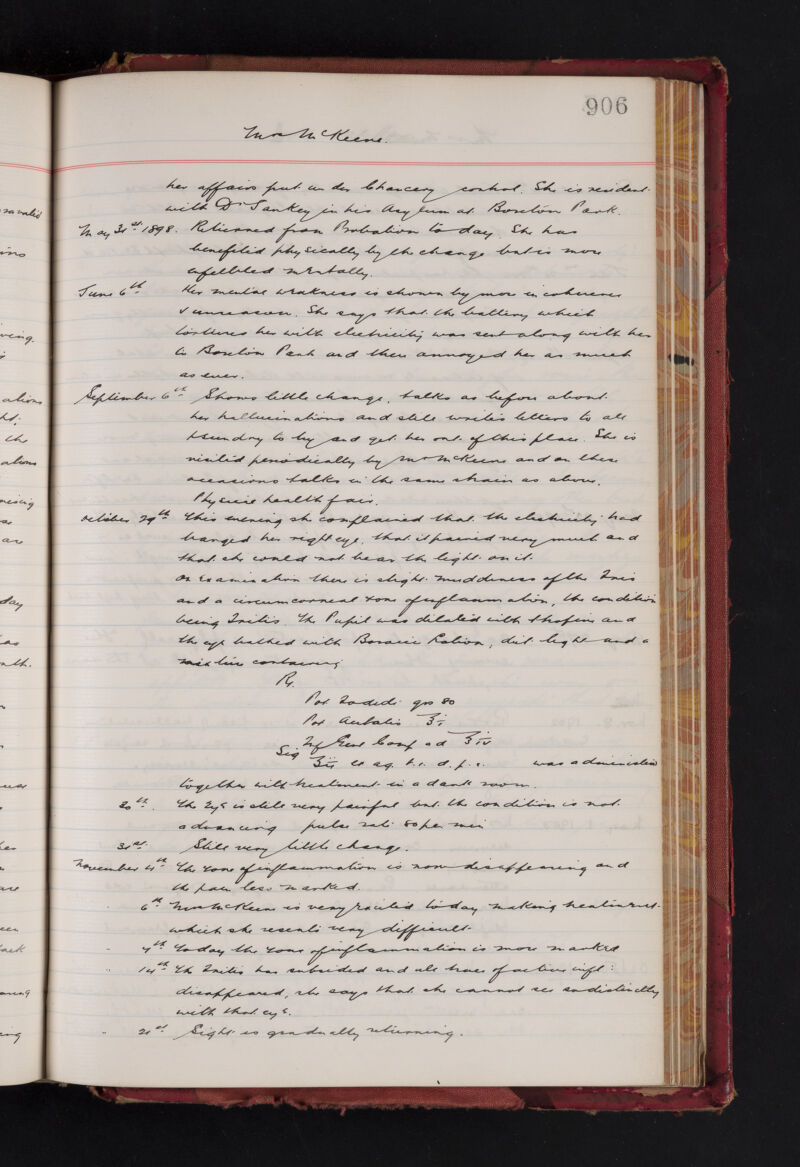 906
Mrs McKeene.
her affairs put under Chancery control. She is resident
with Dr Sankey in his Asylum at Boreton Park.
May 31st 1898. Returned from Probation to day. She has
benefited physically by the change but is more
enfeebled mentally.
June 6th Her mental weakness is shown by more incoherence
& unreason. She says that the battery which
tortures her with electricity was sent along with her
to Boreton Park and there annoyed her as much
as ever.
September 6th Shows little change, talks as before about
her hallucinations and still writes letters to all
& sundry to try and get her out of this place. She is
visited periodically by Mr McKeene and on these
occasions talks in the same strain as above.
Physical health fair.
October 29th This evening she complained that the electricity had
banged her right eye, that it pained very much and
that she could not bear the light on it.
On examination there is slight muddiness of the Iris
and a circumcorneal zone of inflammation, the condition
being Iritis. The Pupil was dilated with Atropine and
the eye bathed with Boracic Lotion, diet light and a
mixture containing
Rx
Pot Iodidi grs 80
Pot
Inf Gent Comp ad ℥iv
Sig ℥ss ex aq. t. d. p. c. was administered
together with treatment in a dark room.
30th. The Eye is still very painful but the condition is not
advancing pulse rate 80 per min
31st. Still very little change.
November 4th The zone of inflammation is now disappearing and
the pain less marked.
" 6th Mrs McKeene is very excited today making treatment
which she resents very difficult.
" 7th Today the zone of inflammation is more marked
" 14th The Iritis has subsided and all trace of active infl:
disappeared, she says that she cannot see so distinctly
with that eye.
" 21st Sight is gradually returning.